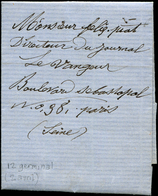 Monsieur felix piat
Directeur du Journal
Le Vangeur
Boulevard Sebastopol
no. 98. paris
(Seine)
12 germinal